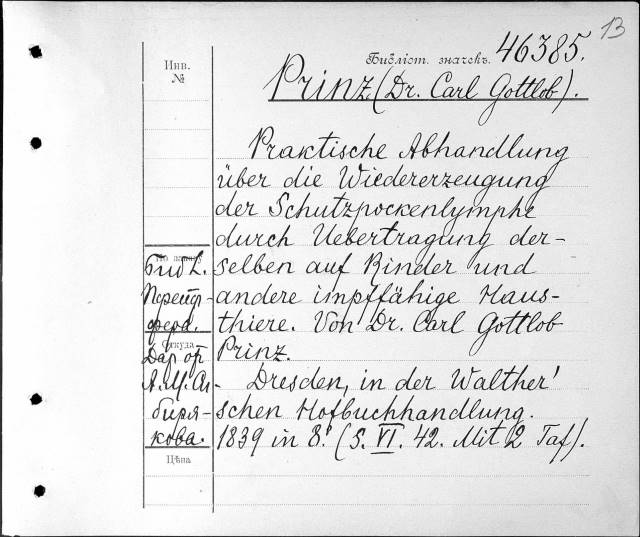 13
Инв.
№
Библіот. значекъ. 46385.
Prinz, (Dr. Carl Gottlob).
Praktische Abhandlung
über die Wiedererzeugung
der Schutzpockenlymphe
durch Uebertragung der-
selben auf Rinder und
andere impffähige Haus-
thiere. Von Dr. Carl Gottlob
Prinz.
Dresden, in der Walther'
schen Hofbuchhandlung.
1839 in 8.° (S. VI. 42. Mit 2 Taf).
Откуда
Дар от
Цѣна